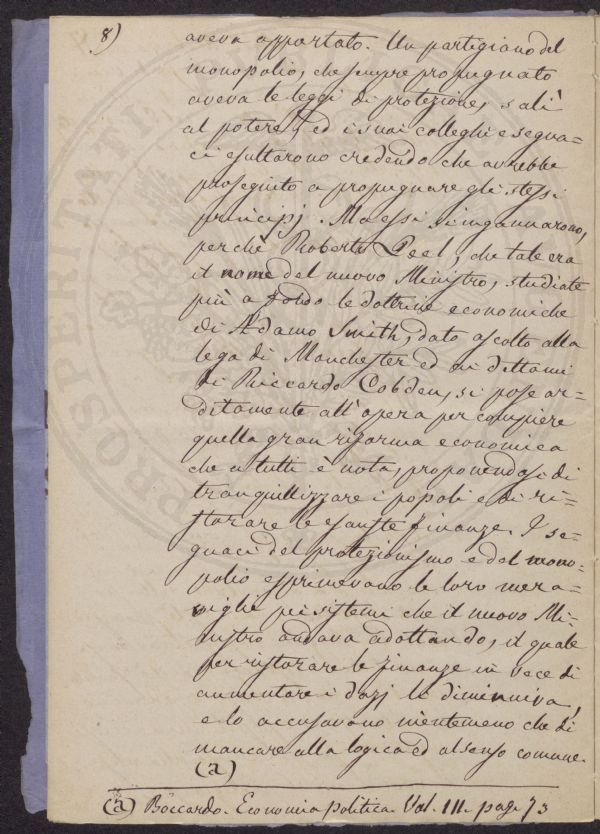 8)
aveva apportato. Un partigiano del
monopolio, che sempre propugnato
aveva le leggi di protezione, salì
al potere, ed i suoi colleghi e segua-
ci esultarono credendo che avrebbe
proseguito a propugnare gli stessi
principj. Ma essi s'ingannarono,
perchè Roberto Peel, che tale era
il nome del nuovo Ministro, studiate
più a fondo le dottrine economiche
di Adamo Smith, dato ascolto alla
lega di Manchester ed ai dettami
di Riccardo Cobden, si pose ar-
ditamente all'opera per compiere
quella gran riforma economica
che a tutti è nota, proponendosi di
tranquillizzare i popoli e di ri-
storare le esauste finanze. I se-
guaci del protezionismo e del mono-
polio esprimevano le loro mera-
viglie pei sistemi che il nuovo Mi-
nistro andava adottando, il quale
per ristorare le finanze in vece di
aumentare i dazj le diminuiva,
e lo accusavano nientemeno che di
mancare alla logica ed al senso comune.
(a)
(a) Boccardo. Economia politica Vol. III. pag. 73
PROSPERITATI